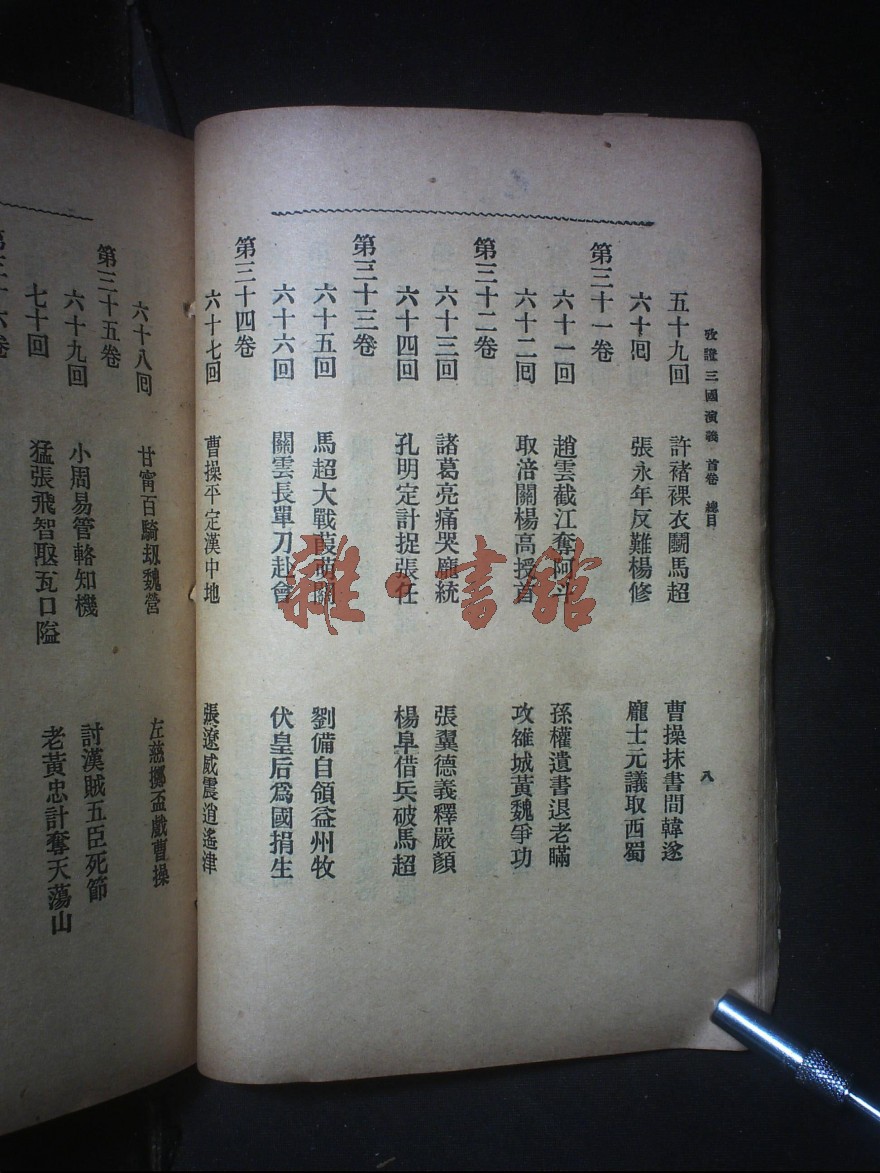 攷證三國演義 首卷 總目 八
五十九回 許褚裸衣鬭馬超 曹操抹書間韓遂
六十回 張永年反難楊修 龐士元議取西蜀
第三十一卷
六十一回 趙雲截江奪阿斗 孫權遺書退老瞞
六十二回 取涪關楊高授首 攻雒城黃魏爭功
第三十二卷
六十三回 諸葛亮痛哭龐統 張翼德義釋嚴顏
六十四回 孔明定計捉張任 楊阜借兵破馬超
第三十三卷
六十五回 馬超大戰葭萌關 劉備自領益州牧
六十六回 關雲長單刀赴會 伏皇后爲國捐生
第三十四卷
六十七回 曹操平定漢中地 張遼威震逍遙津
六十八回 甘甯百騎刼魏營 左慈擲盃戲曹操
第三十五卷
六十九回 小周易管輅知機 討漢賊五臣死節
七十回 猛張飛智取瓦口隘 老黃忠計奪天蕩山
第三十六卷
雜·書館